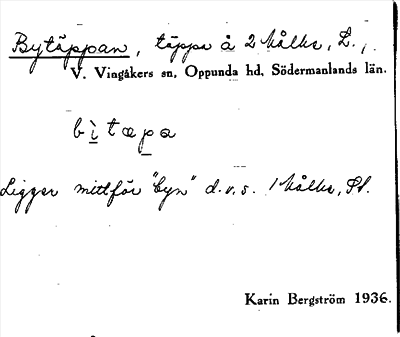 Bytäppan, täppa å 2 Målke, L.,
V. Vingåkers sn, Oppunda hd, Södermanlands län.
bìtæpa
Ligger mittför "byn" d.v.s. 1 Målke, St.
Karin Bergström 1936.